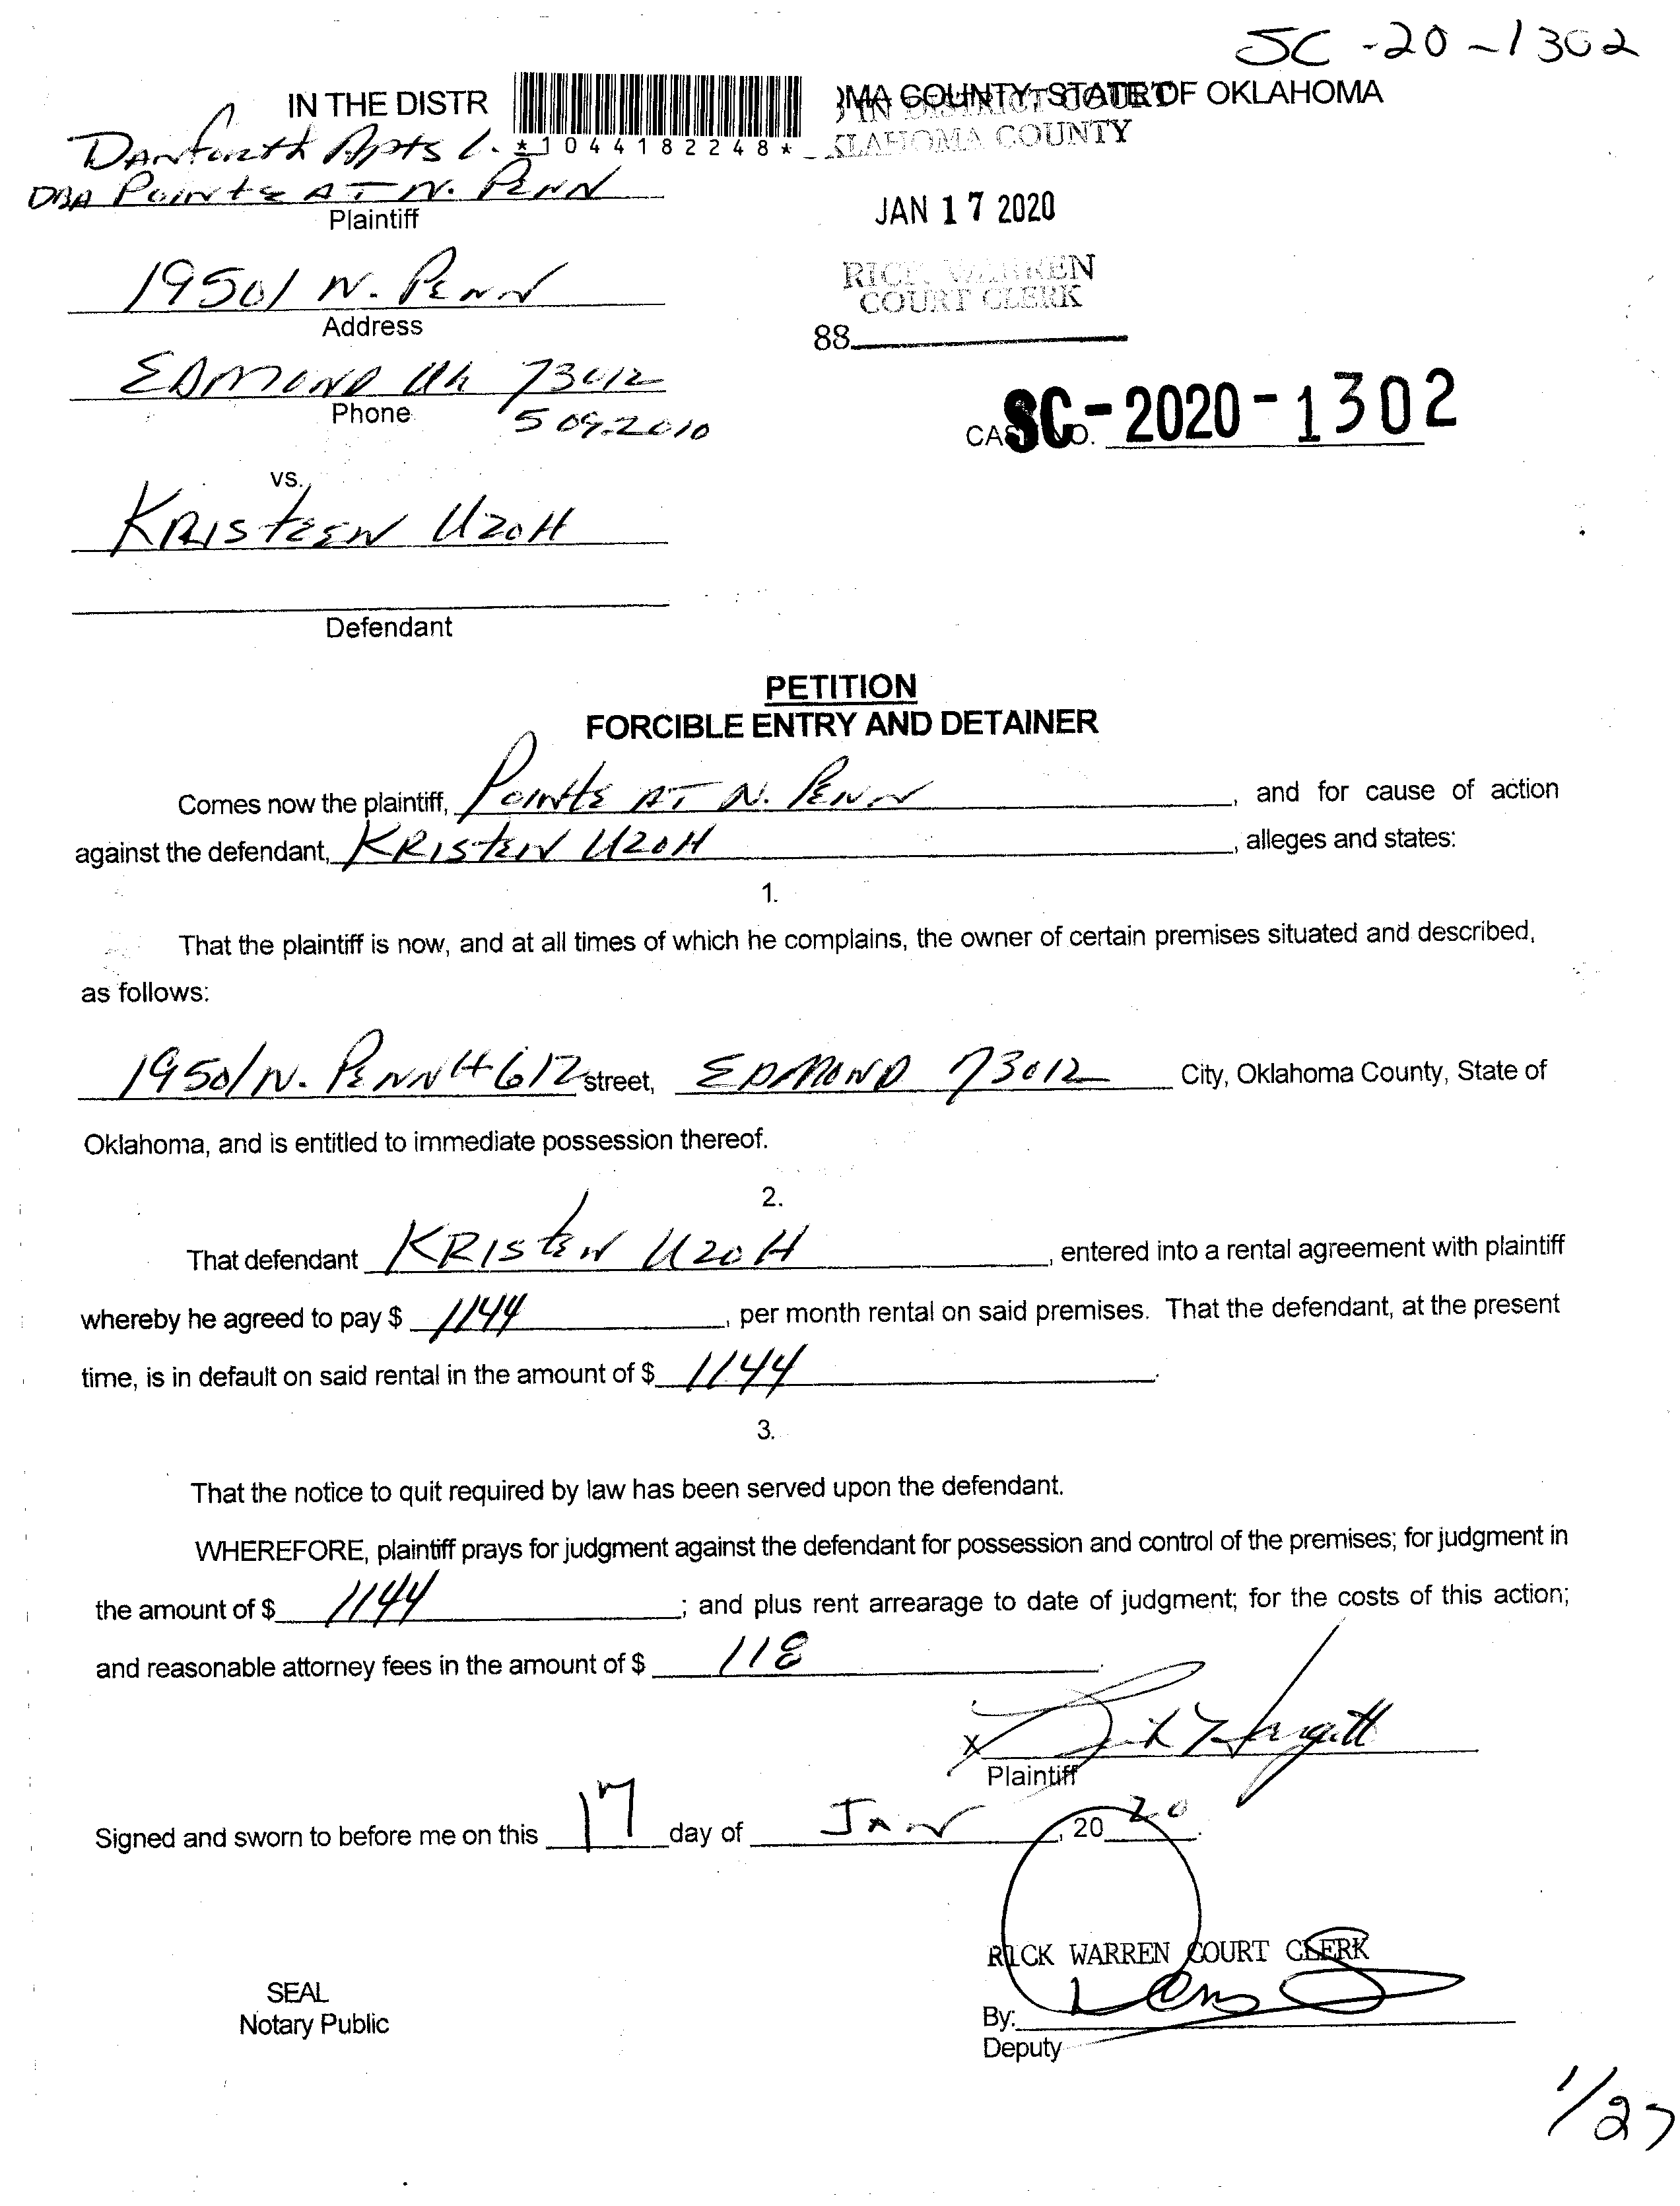 SC-20-1302
IN THE DISTR OMA COUNTY, STATE OF OKLAHOMA
IN DISTRICT COURT
KLAHOMA COUNTY
Danforth Apts L.
*1044182248*
DBA Pointe AT N. PENN
Plaintiff
JAN 17 2020
19501 N. PENN
Address
RICK WARREN
COURT CLERK
88
EDMOND Ok 73012
Phone
509.2010
CASE NO. SC-2020-1302
vs.
KRISTEEN UZOH
Defendant
PETITION
FORCIBLE ENTRY AND DETAINER
Comes now the plaintiff, Pointe AT N. PENN, and for cause of action
against the defendant, KRISTEN UZOH, alleges and states:
1.
That the plaintiff is now, and at all times of which he complains, the owner of certain premises situated and described,
as follows:
19501 N. PENN #612 street, EDMOND 73012 City, Oklahoma County, State of
Oklahoma, and is entitled to immediate possession thereof.
2.
That defendant KRISTEN UZOH, entered into a rental agreement with plaintiff
whereby he agreed to pay $ 1144, per month rental on said premises. That the defendant, at the present
time, is in default on said rental in the amount of $ 1144.
3.
That the notice to quit required by law has been served upon the defendant.
WHEREFORE, plaintiff prays for judgment against the defendant for possession and control of the premises; for judgment in
the amount of $ 1144; and plus rent arrearage to date of judgment; for the costs of this action;
and reasonable attorney fees in the amount of $ 118.
X
Plaintiff
Signed and sworn to before me on this 17 day of JAN, 2020.
RICK WARREN COURT CLERK
SEAL
Notary Public
By:
Deputy
1/27